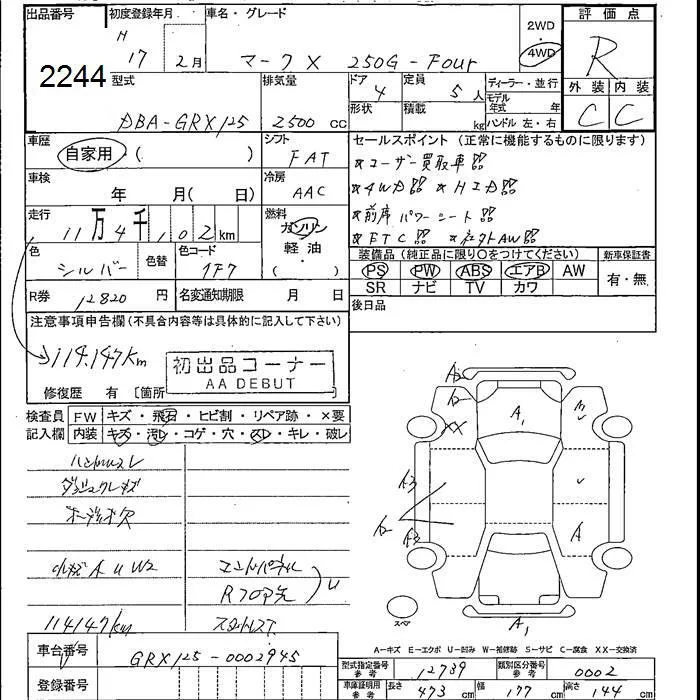 出品番号 初度登録年月 車名・グレード 2WD 評価点
2244 H 17年 2月 マークX 250G-Four 4WD R
型式 排気量 ドア 4 定員 5人 ディーラー・並行 外装 内装
DBA-GRX125 2500 cc 形状 積載 kg モデル年式 年 C C
ハンドル 左・右
車歴 自家用 ( ) シフト FAT セールスポイント (正常に機能するものに限ります)
★ユーザー買取車
車検 年 月( 日) 冷房 AAC ★4WD ★HID
走行 11万4千102km 燃料 ガソリン ★前席パワーシート
軽油 ★ETC ★社外AW
色 シルバー 色替 色コード 1F7 ( ) 装備品 (純正品に限り○をつけてください) 新車保証書
PS PW ABS エアB AW 有・無
R券 12820円 名変通知期限 月 日 SR ナビ TV カワ
注意事項申告欄 (不具合内容等は具体的に記入して下さい) 後日品
114.147Km
初出品コーナー
AA DEBUT
修復歴 有 [箇所
検査員 FW キズ・飛石・ヒビ割・リペア跡・×要
記入欄 内装 キズ・汚レ・コゲ・穴・スレ・キレ・破レ
ハンドルスレ
ダッシュクレキズ
オーディオ欠
小キズAUW2 エンドパネル
Rフロア先 U
114147km スタッドレスT
A2
A2 A1 U
XX
A3
A2 A
A2
スペア A1
A-キズ E-エクボ U-凹み W-補修跡 S-サビ C-腐食 XX-交換済
車台番号 GRX125-0002945 型式指定番号参考 12739 類別区分番号参考 0002
登録番号 車庫証明用参考 長さ 473 cm 幅 177 cm 高さ 144 cm